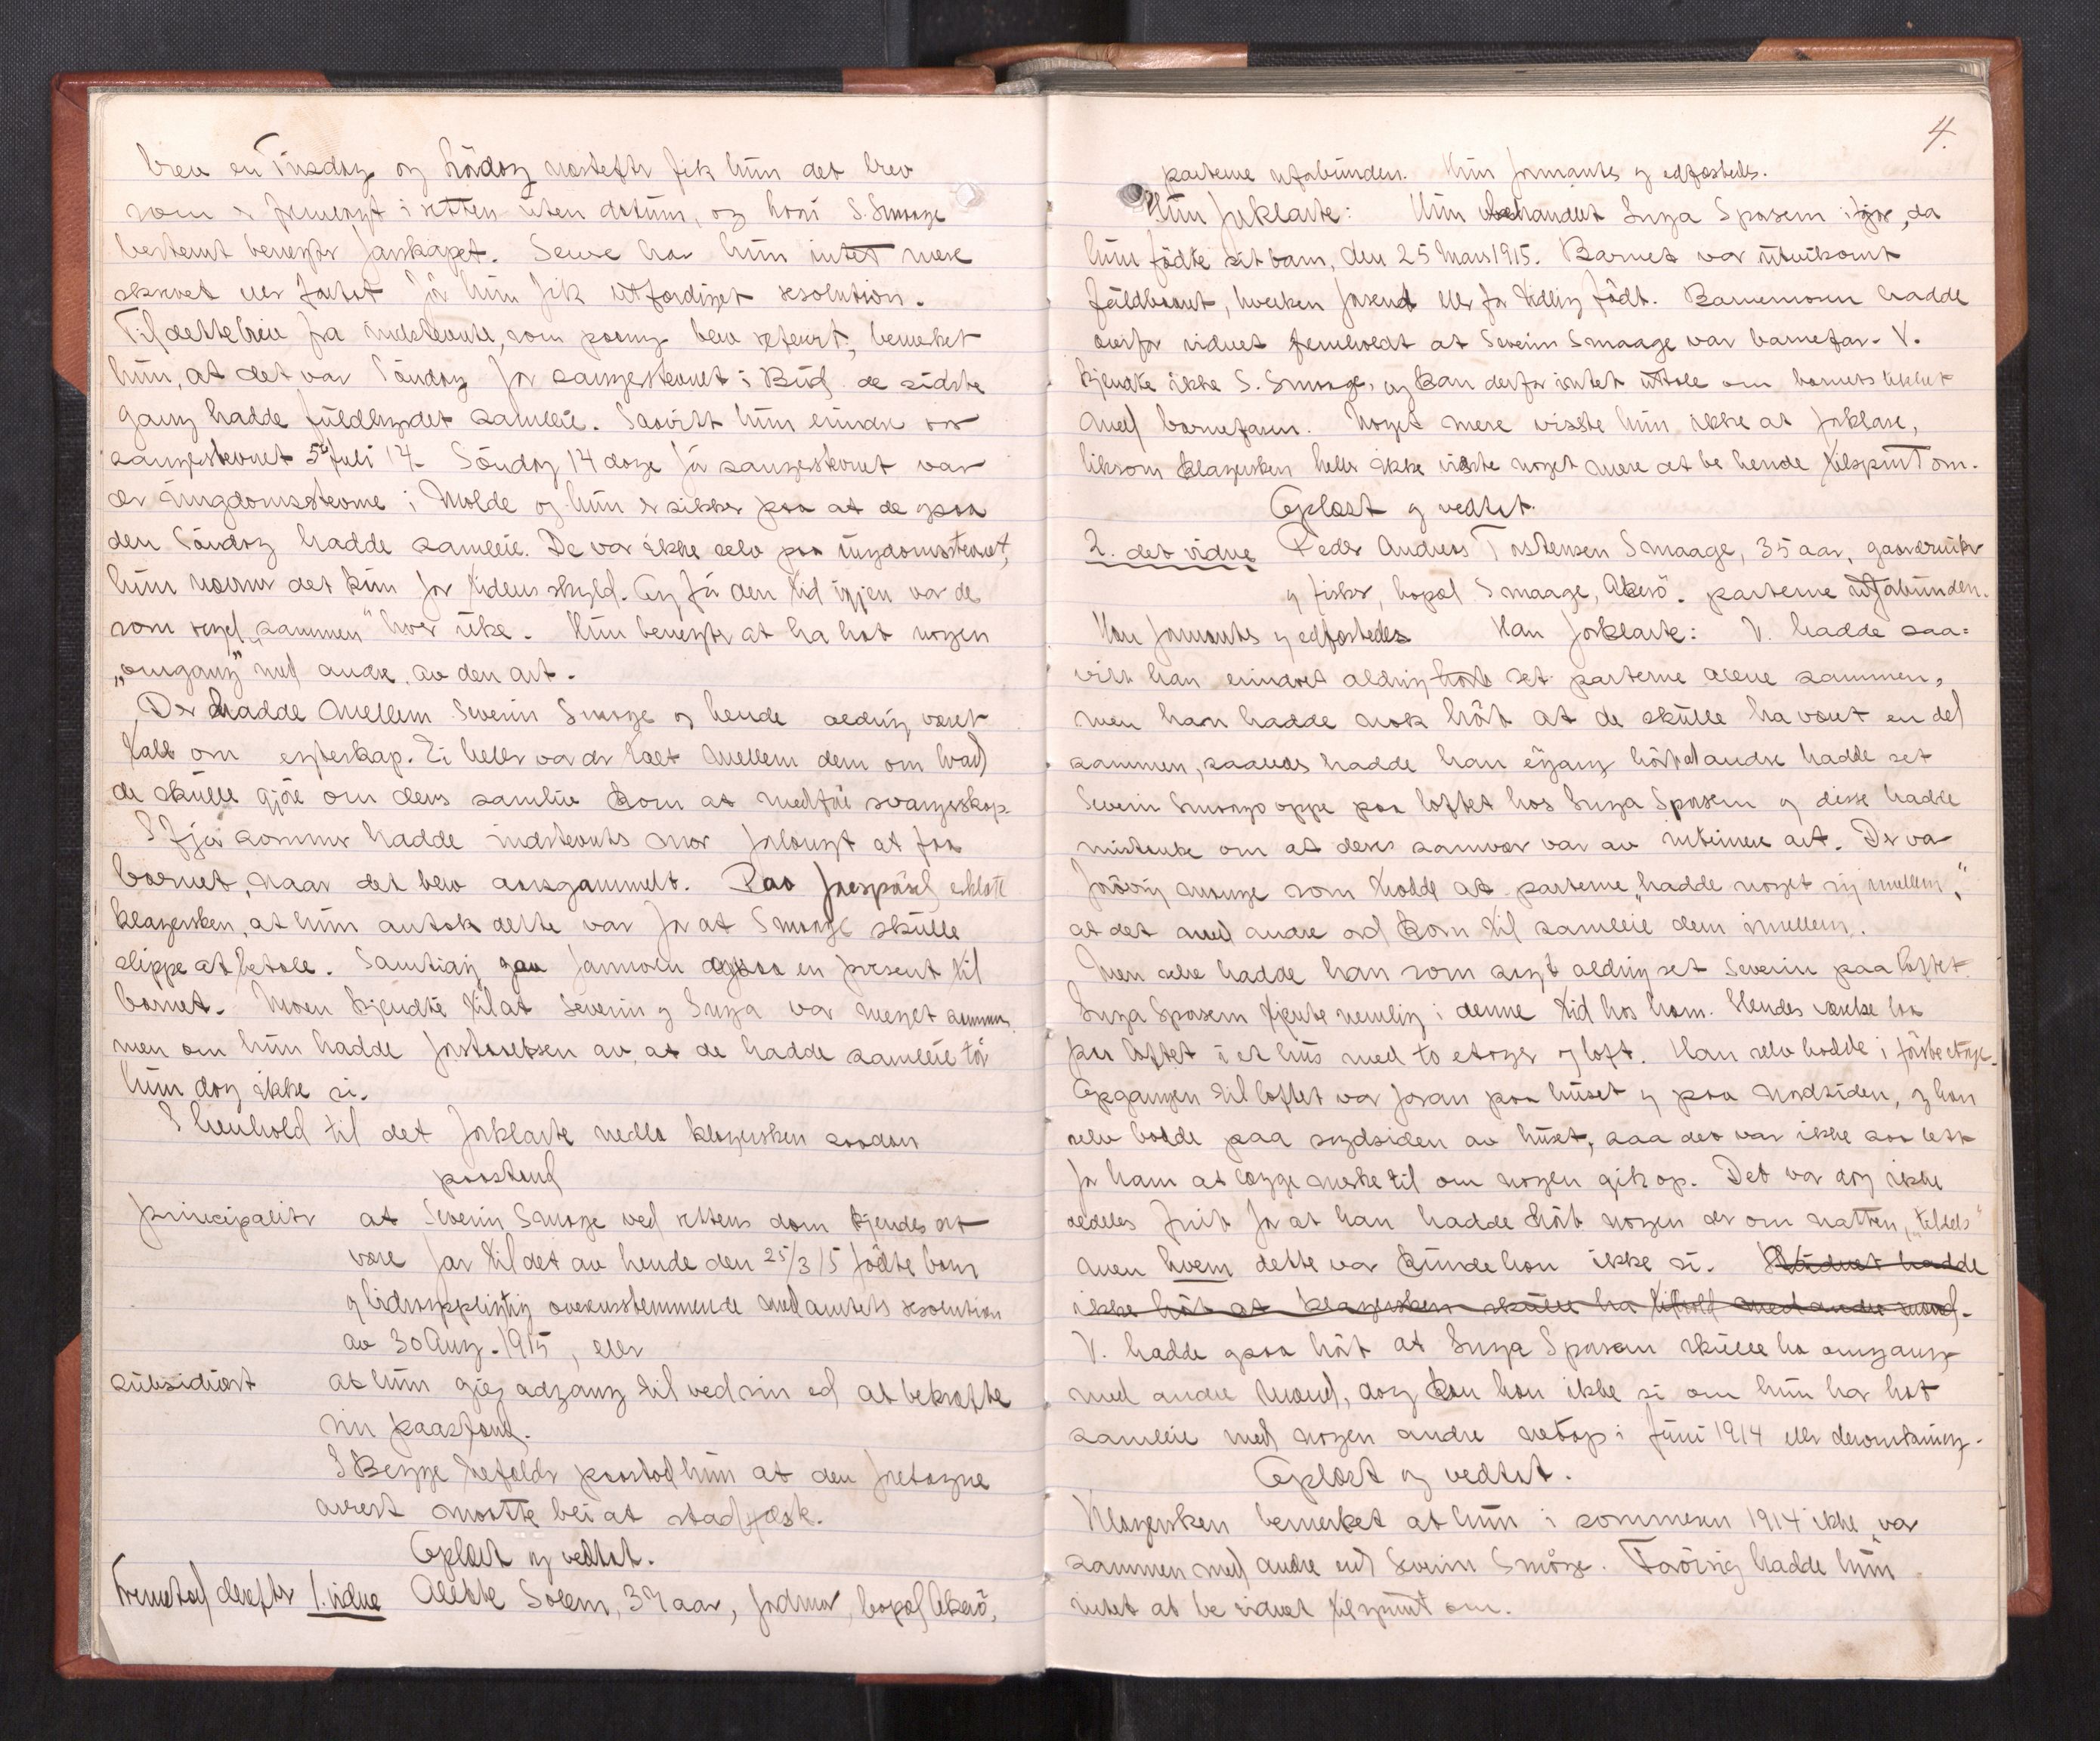 brev en Tirsdag og Lördag næstefter fik hun det brev
som er fremlagt i retten uten datum, og hvori S. Smaage
bestemt benegter farskapet. Senere har hun intet mere
skrevet eller fortalt för hun fik utfærdiget resolution.
Til dette brev fra indstevnte, som paany blev referert, bemerket
hun, at det var Söndag för sangerstevnet i Bud de sidste
gang hadde fuldbyrdet samleie. Saavidt hun erindrer var
sangerstevnet 5te Juli 14. Söndag 14 dage för sangerstevnet var
der ungdomsstevne i Molde og hun er sikker paa at de ogsaa
den Söndag hadde samleie. De var ikke selv paa ungdomsstevnet,
hun nævner det kun for tidens skyld. Og för den tid igjen var de
som regel „sammen" hver uke. Hun benegter at ha hat nogen
„omgang" med andre av den art.
Der hadde mellem Severin Smaage og hende aldrig været
tale om egteskap. Ei heller var der talt mellem dem om hvad
de skulle gjöre om deres samleie kom at medföre svangerskap.
I fjor sommer hadde indstevntes mor forlangt at faa
barnet, naar det blev aarsgammelt. Paa forespörsel erklærte
klagersken, at hun antok dette var for at Smaage skulle
slippe at betale. Samtidig gav farmoren ogsaa en present til
barnet. Moren kjendte til at Severin og Inga var meget sammen,
men om hun hadde forstaaelsen av, at de hadde samleie tör
hun dog ikke si.
I henhold til det forklarte nedla klagersken saadan
paastand
principaliter at Severin Smaage ved rettens dom kjendes at
være far til det av hende den 25/3 15 födte barn
og bidragspligtig overensstemmende med amtets resolution
av 30 Aug. 1915, eller
subsidiært at hun gies adgang til ved sin ed at bekræfte
sin paastand.
I begge tilfælder paastod hun at den foretagne
arrest maatte bli at stadfæste.
Oplæst og vedtat.
Fremstod derefter 1. vidne Alette Solem, 37 aar, jordmor, bopæl Akerö,
4.
parterne uforbunden. Hun formantes og edfæstedes.
Hun forklarte: Hun behandlet Inga Sporsem ifjor, da
hun födte sit barn, den 25 Mars 1915. Barnet var utvilsomt
fuldbaaret, hverken forsent eller for tidlig födt. Barnemoren hadde
overfor vidnet fremholdt at Severin Smaage var barnefar. V.
kjendte ikke S. Smaage, og kan derfor intet uttale om barnets likhet
med barnefaren. Noget mere visste hun ikke at forklare,
liksom klagersken heller ikke visste noget mere at be hende tilspurt om.
Oplæst og vedtat.
2. det vidne Peder Andreas Torstensen Smaage, 35 aar, gaardbruker
og fisker, bopæl Smaage, Akerö. parterne uforbunden.
Han formantes og edfæstedes Han forklarte: V. hadde saa=
vidt han erindret aldrig hört set parterne alene sammen,
men han hadde nok hört at de skulle ha været en del
sammen, saaledes hadde han engang hört at andre hadde set
Severin Smaage oppe paa loftet hos Inga Sporsem og disse hadde
mistanke om at deres samvær var av intimere art. Der var
forövrig mange som trodde at parterne „hadde noget sig imellem",
at det med andre ord kom til samleie dem imellem.
Men selv hadde han som sagt aldrig set Severin paa loftet.
Inga Sporsem tjente nemlig i denne tid hos ham. Hendes værelse laa
paa loftet i et hus med to etager og loft. Han selv bodde i förste etage.
Opgangen til loftet var foran paa huset og paa nordsiden, og han
selv bodde paa sydsiden av huset, saa det var ikke saa lett
for ham at lægge merke til om nogen gik op. Det var dog ikke
aldeles frit for at han hadde hört nogen der om natten, „tilsels"
men hvem dette var kunde han ikke si. Vidnet hadde
ikke hört at klagersken skulle ha tilhold med andre mænd.
V. hadde ogsaa hört at Inga Sporsem skulle ha omgang
med andre mænd, dog kan han ikke si om hun har hat
samleie med nogen andre netop i Juni 1914 eller deromkring.
Oplæst og vedtat.
Klagersken bemerket at hun i sommeren 1914 ikke var
sammen med andre end Severin Smaage. Forövrig hadde hun
intet at be vidnet tilspurt om.